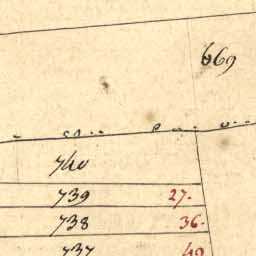 669
740
739 27.
738 36.
737 49